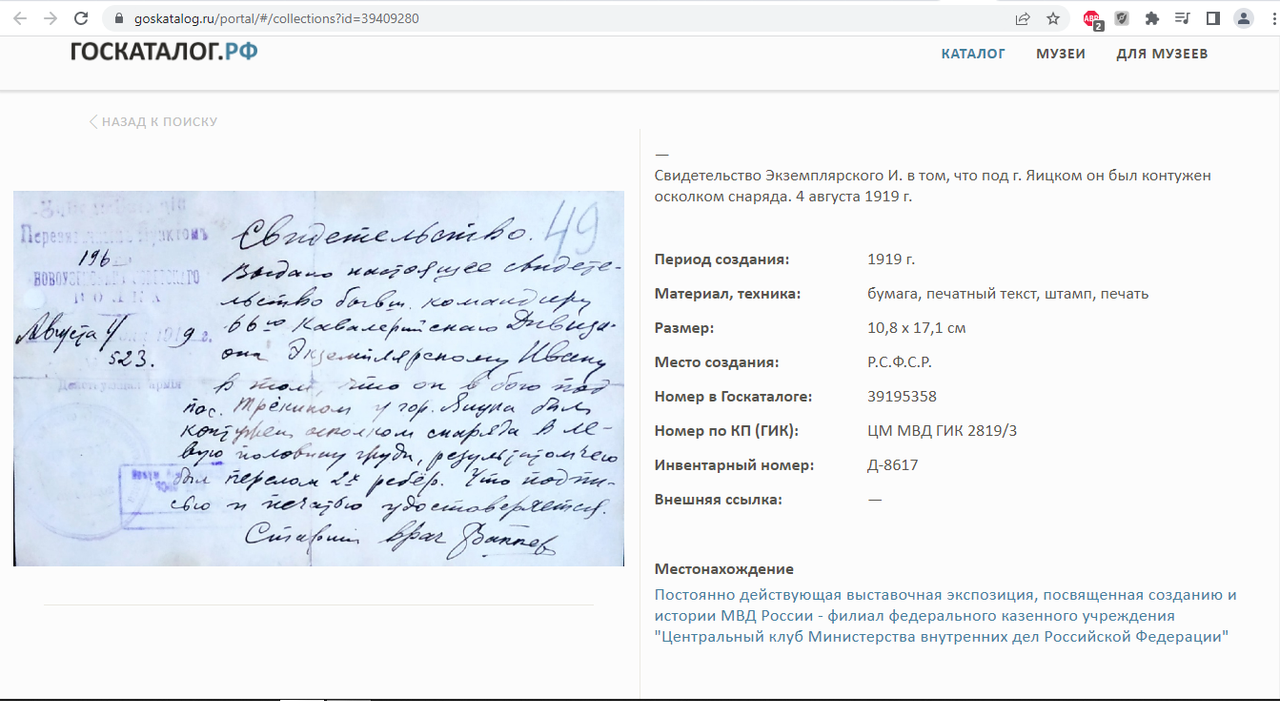 goskatalog.ru/portal/#/collections?id=39409280
2
ГОСКАТАЛОГ.РФ
КАТАЛОГ
МУЗЕИ
ДЛЯ МУЗЕЕВ
НАЗАД К ПОИСКУ
49
Свидетельство.
196
Выдано настоящее свидете-
льство бывш. командиру
66го Кавалерийскаго Дивизи-
она Экземплярскому Ивану
в том, что он в бою под
пос. у гор. был
контужен осколком снаряда в ле-
вую половину груди, результатом чего
был перелом 2х ребер. Что подпи-
сью и печатью удостоверяется.
Старший врач
Перевязочным Пунктомъ
ПОЛКА
Августа 4 1919 г.
523.
Действующая армія
—
Свидетельство Экземплярского И. в том, что под г. Яицком он был контужен
осколком снаряда. 4 августа 1919 г.
Период создания: 1919 г.
Материал, техника: бумага, печатный текст, штамп, печать
Размер: 10,8 х 17,1 см
Место создания: Р.С.Ф.С.Р.
Номер в Госкаталоге: 39195358
Номер по КП (ГИК): ЦМ МВД ГИК 2819/3
Инвентарный номер: Д-8617
Внешняя ссылка: —
Местонахождение
Постоянно действующая выставочная экспозиция, посвященная созданию и
истории МВД России - филиал федерального казенного учреждения
"Центральный клуб Министерства внутренних дел Российской Федерации"